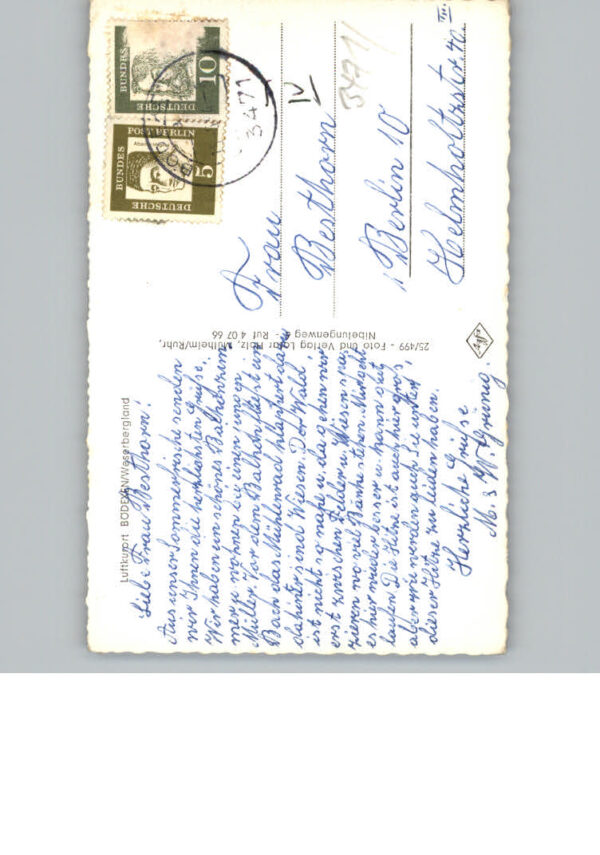 Luftkurort BÖDEXEN/Weserbergland
Liebe Frau Besthorn!
Aus unser Sommerfrische senden
wir Ihnen die herzlichsten Grüße.
Wir haben ein schönes Balkonzim-
mer u. wohnen bei einem
Müller. Vor dem Balkon fließt ein
Bach das Mühlenrad plätschert dann
dahinter sind Wiesen. Der Wald
ist nicht so nahe u. da gehen wir
erst zwischen Felder u. Wiesen spa-
zieren wo viel Bänke stehen. M. geht
es hier wieder besser u. kann gut
laufen. Die Hitze ist auch hier groß,
aber wir werden auch Sie unter
dieser Hitze zu leiden haben.
Herzliche Grüße
M. & W. Grüng.
25/499 - Foto und Verlag Lothar Holz, Mülheim/Ruhr,
Nibelungenweg - Ruf 4 07 66
Agfa
DEUTSCHE
BUNDES
10
DEUTSCHE
BUNDES
POST BERLIN
5
3471
IV
3471/
Frau
Besthorn
1 Berlin 10
Helmholtzstr. 40 III.